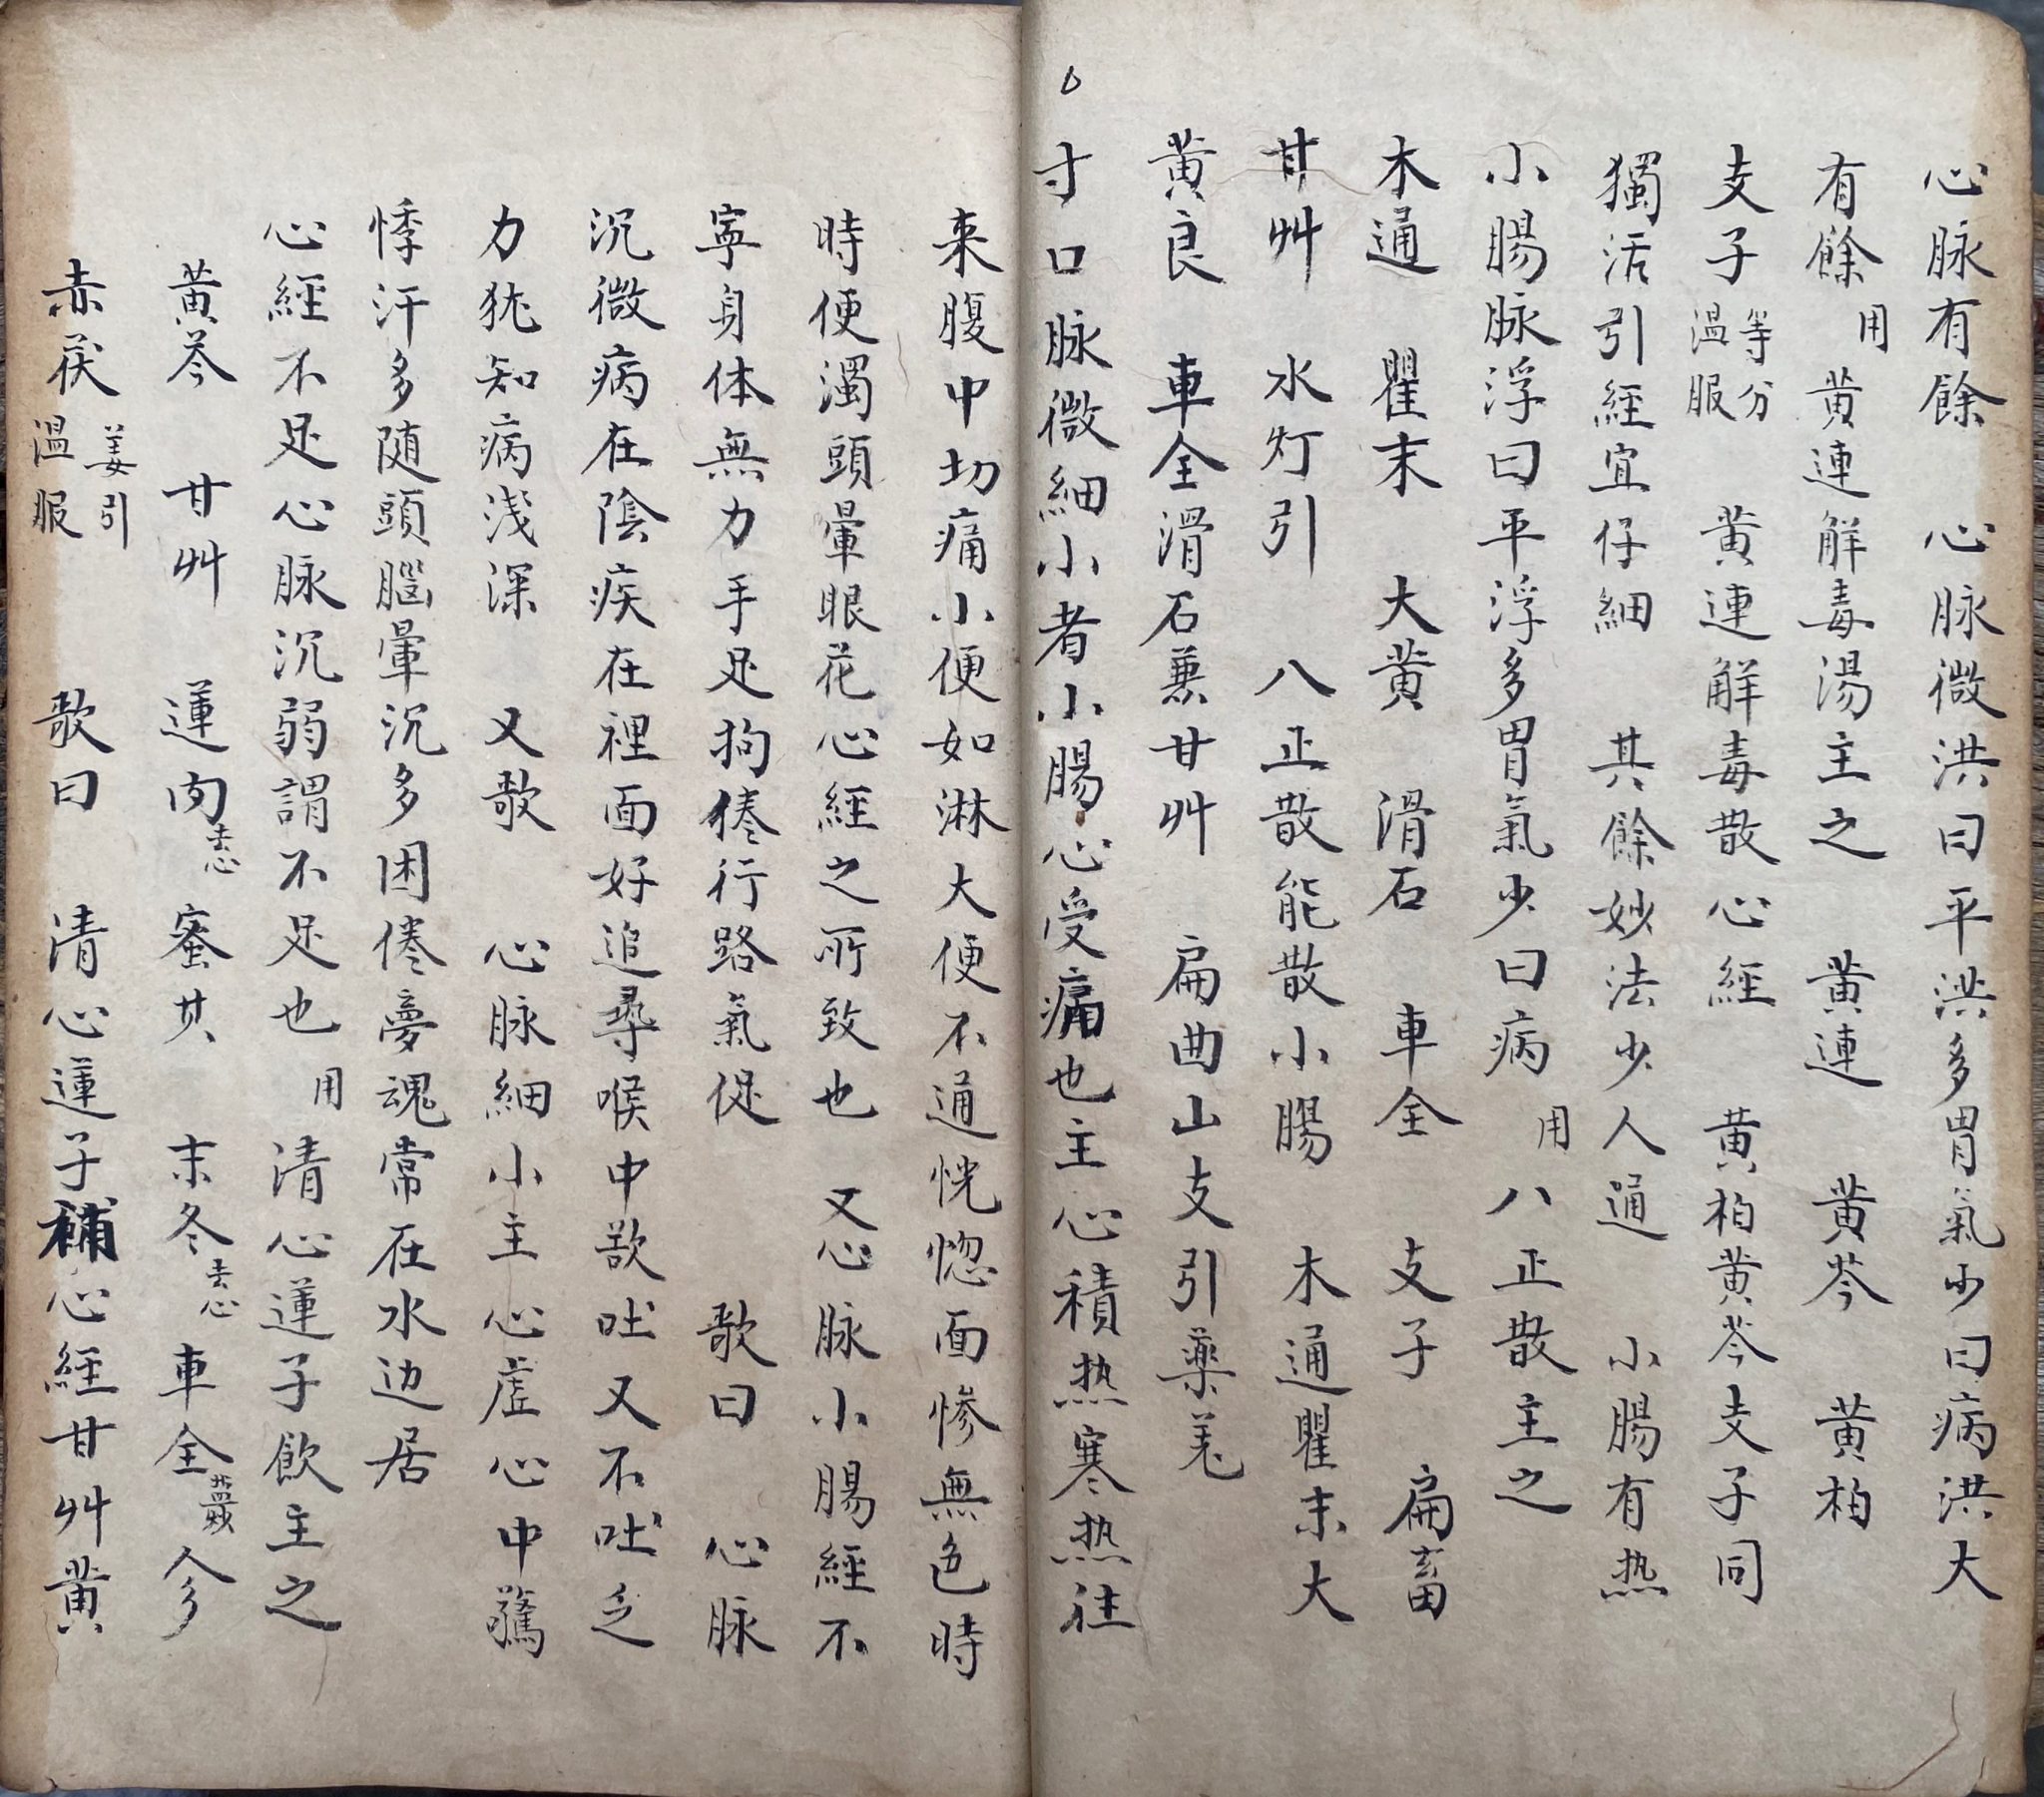 心脉有餘　心脉微洪曰平洪多胃氣少曰病洪大
有餘　用　黄連解毒湯主之　黄連　黄芩　黄柏
支子等分温服　黄連解毒散心經　黄柏黄芩支子同
獨活引經宜仔細　其餘妙法少人通　小腸有热
小腸脉浮曰平浮多胃氣少曰病　用　八正散主之
木通　瞿末　大黄　滑石　車全　支子　扁畜
甘艸　水灯引　八正散能散小腸　木通瞿末大
黄良　車全滑石兼甘艸　扁曲山支引藥羌
寸口脉微細小者小腸心受痛也主心積热寒热往
来腹中切痛小便如淋大便不通恍惚面惨無色時
時便濁頭暈眼花心經之所致也　又心脉小腸經不
寧身体無力手足拘倦行路氣促　歌曰　心脉
沉微病在陰疾在裡面好追尋喉中欲吐又不吐乏
力犹知病浅深　又歌　心脉細小主心虚心中驚
悸汗多随頭腦暈沉多困倦夢魂常在水边居
心經不足心脉沉弱謂不足也　用　清心蓮子飲主之
黄芩　甘艸　蓮肉去心　蜜芪　末冬去心　車全　参
赤茯姜引温服　歌曰　清心蓮子補心經甘艸黄